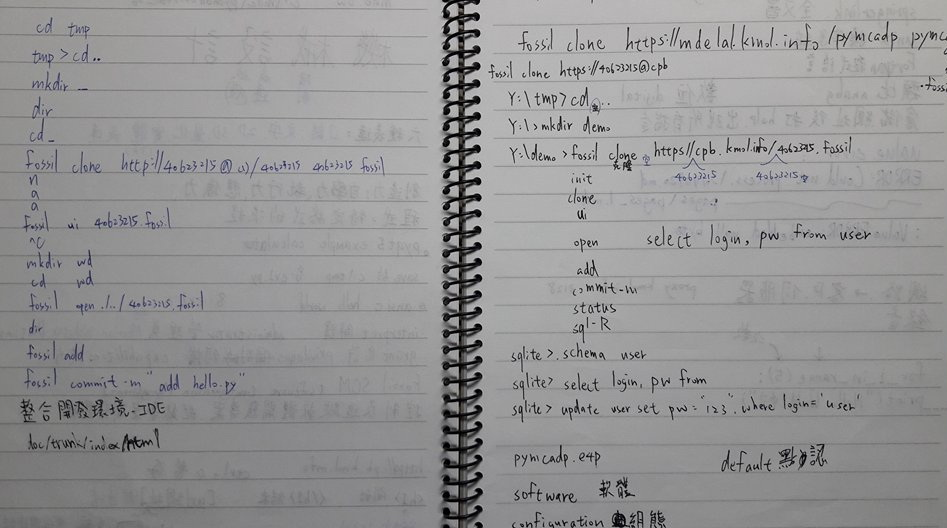 cd tmp
tmp > cd ..
mkdir _
dir
cd _
fossil clone http://40623215@ /40623215 40623215.fossil
n
a
a
fossil ui 40623215.fossil
^C
mkdir wd
cd wd
fossil open ./../40623215.fossil
dir
fossil add .
fossil commit -m "add hello.py"
整合開發環境 - IDE
doc/trunk/index.html
fossil clone https://mdelab.kmol.info/pymcadp pymc
.foss
fossil clone https://40623215@cpb
Y:\tmp>cd ..
Y:\>mkdir demo
Y:\demo>fossil clone https://cpb.kmol.info/40623215.fossil
克隆 40623215 40623215
init
clone
ui
open select login, pw from user
add
commit -m
status
sql -R
sqlite >.schema user
sqlite> select login, pw from
sqlite> update user set pw="123". where login='user'
pymcadp.e4p default 默認
software 軟體
configuration 組態